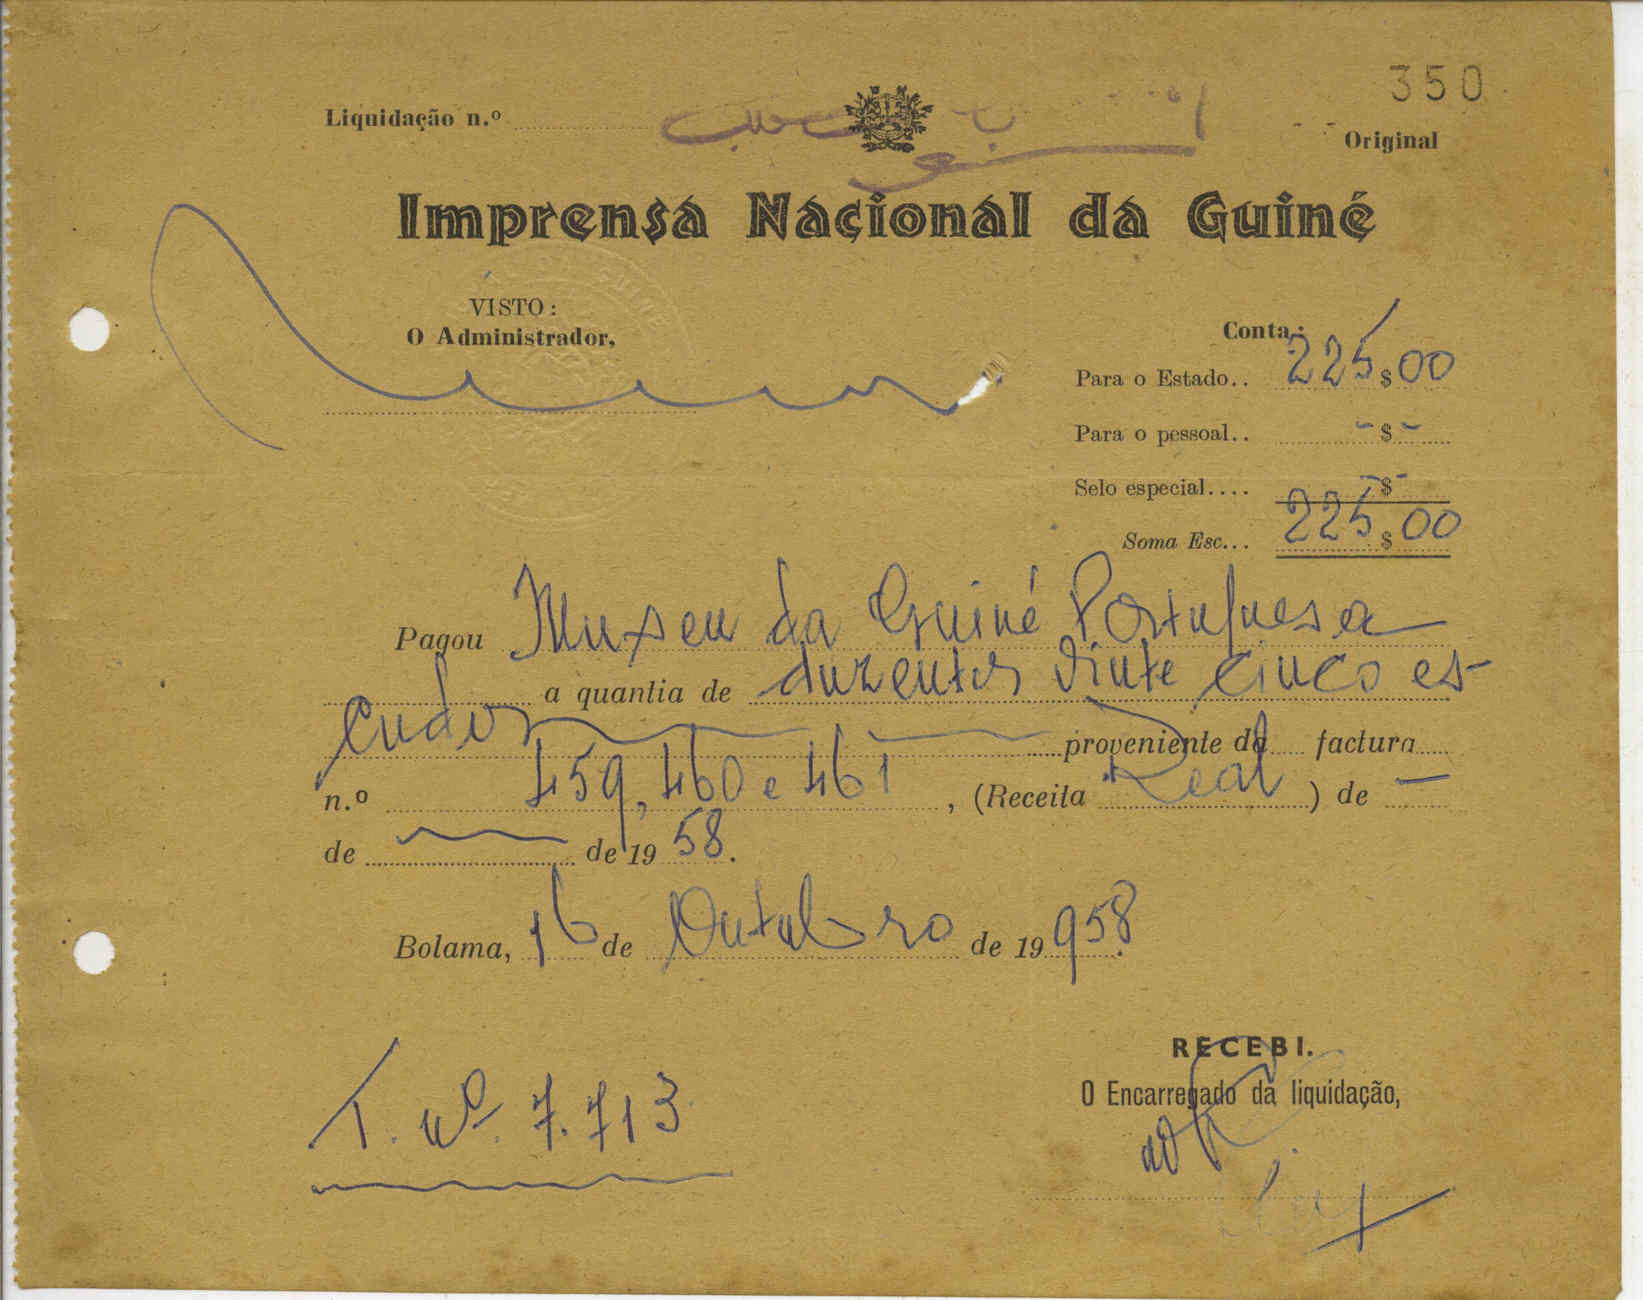 350
Liquidação n.º
Original
Imprensa Nacional da Guiné
VISTO:
O Administrador,
Conta:
Para o Estado.. 225$00
Para o pessoal.. -$-
Selo especial.... -$-
Soma Esc... 225$00
Pagou Museu da Guiné Portuguesa
a quantia de duzentos vinte cinco es-
cudos proveniente da factura
n.º 459, 460 e 461, (Receita Real) de —
de — de 1958.
Bolama, 16 de Outubro de 19958.
RECEBI.
O Encarregado da liquidação,
T. nº. 7.713